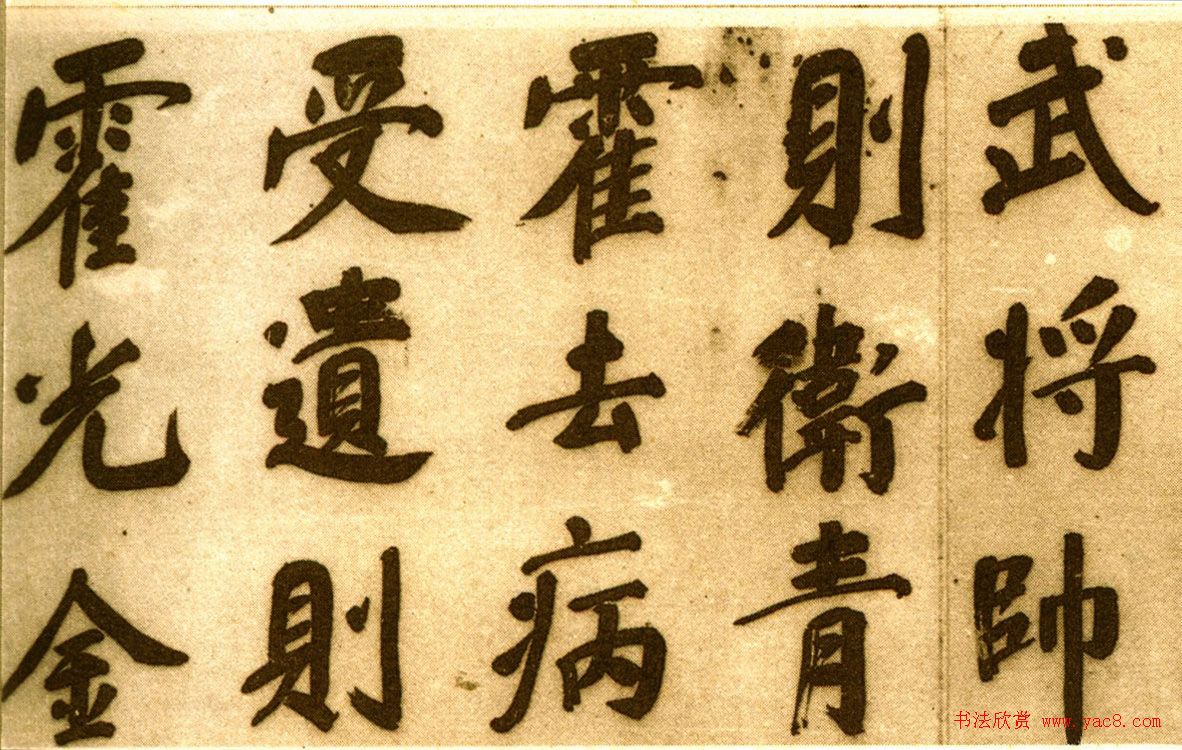 武将帥
則衛青
霍去病
受遺則
霍光金
书法欣赏 www.yac8.com